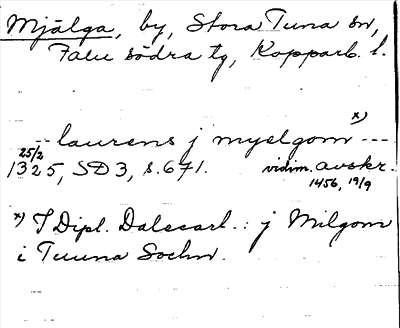 Mjälga, by, Stora Tuna sn,
Falu södra tg, Kopparb. l.
x)
-- laurens j myelgom ---
25/2
1325, SD 3, s. 671. vidim. avskr.
1456, 19/9
x) I Dipl. Dalecarl.: j Milgom
i Tuuna Sochn.